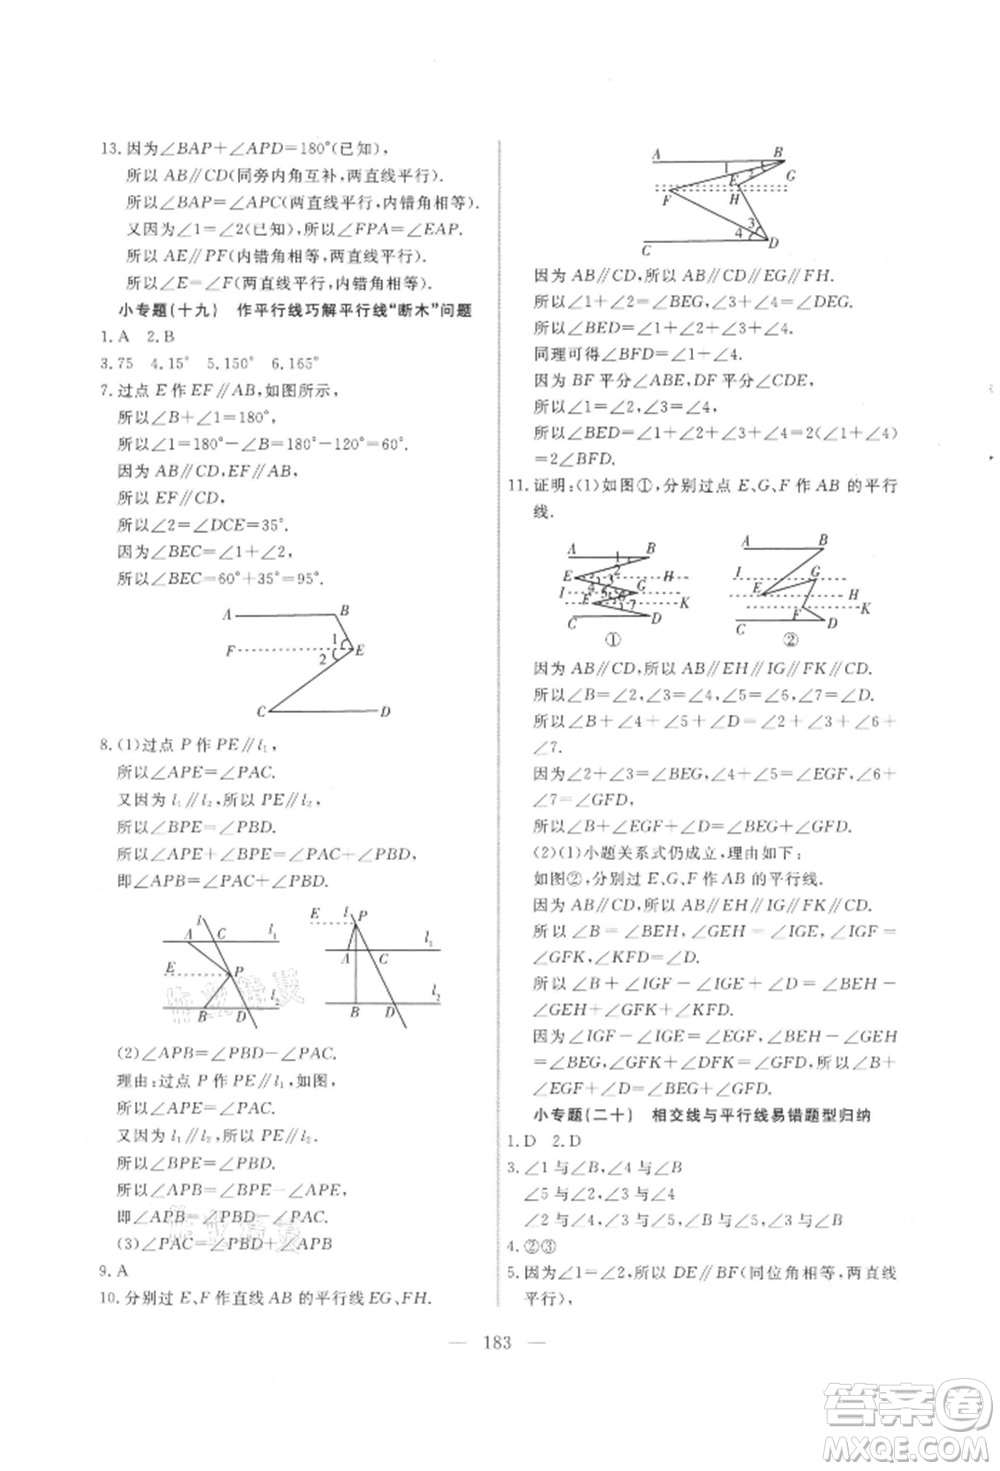 13. 因为∠BAP+∠APD=180°(已知),
所以 AB∥CD(同旁内角互补,两直线平行).
所以∠BAP=∠APC(两直线平行,内错角相等).
又因为∠1=∠2(已知),所以∠FPA=∠EAP.
所以 AE∥PF(内错角相等,两直线平行).
所以∠E=∠F(两直线平行,内错角相等).
小专题(十九) 作平行线巧解平行线“断木”问题
1. A 2. B
3. 75 4. 15° 5. 150° 6. 165°
7. 过点 E 作 EF∥AB,如图所示,
所以∠B+∠1=180°,
所以∠1=180°-∠B=180°-120°=60°.
因为 AB∥CD,EF∥AB,
所以 EF∥CD,
所以∠2=∠DCE=35°.
因为∠BEC=∠1+∠2,
所以∠BEC=60°+35°=95°.
A B
F 1 2 E
C D
8. (1)过点 P 作 PE∥l₁,
所以∠APE=∠PAC.
又因为 l₁∥l₂,所以 PE∥l₂,
所以∠BPE=∠PBD.
所以∠APE+∠BPE=∠PAC+∠PBD.
即∠APB=∠PAC+∠PBD.
l A C l₁
E P
B D l₂
E l P
A C l₁
B D l₂
(2)∠APB=∠PBD-∠PAC.
理由:过点 P 作 PE∥l₁,如图,
所以∠APE=∠PAC.
又因为 l₁∥l₂,所以 PE∥l₂,
所以∠BPE=∠PBD.
所以∠APB=∠BPE-∠APE,
即∠APB=∠PBD-∠PAC.
(3)∠PAC=∠PBD+∠APB
9. A
10. 分别过 E、F 作直线 AB 的平行线 EG、FH.
A B
1 2 E G
F H
3 4
C D
因为 AB∥CD,所以 AB∥CD∥EG∥FH.
所以∠1+∠2=∠BEG,∠3+∠4=∠DEG.
所以∠BED=∠1+∠2+∠3+∠4.
同理可得∠BFD=∠1+∠4.
因为 BF 平分∠ABE,DF 平分∠CDE,
所以∠1=∠2,∠3=∠4,
所以∠BED=∠1+∠2+∠3+∠4=2(∠1+∠4)
=2∠BFD.
11. 证明:(1)如图①,分别过点 E、G、F 作 AB 的平行
线.
A 1 B
2
E 3 H
I 4 5 6 G
F 7 K
C D
①
A B
I G
E H
F K
C D
②
因为 AB∥CD,所以 AB∥EH∥IG∥FK∥CD.
所以∠B=∠2,∠3=∠4,∠5=∠6,∠7=∠D.
所以∠B+∠4+∠5+∠D=∠2+∠3+∠6+
∠7.
因为∠2+∠3=∠BEG,∠4+∠5=∠EGF,∠6
+∠7=∠GFD,
所以∠B+∠EGF+∠D=∠BEG+∠GFD.
(2)(1)小题关系式仍成立,理由如下:
如图②,分别过 E、G、F 作 AB 的平行线.
因为 AB∥CD,所以 AB∥EH∥IG∥FK∥CD.
所以∠B=∠BEH,∠GEH=∠IGE,∠IGF=
∠GFK,∠KFD=∠D.
所以∠B+∠IGF+∠KFD=∠BEH-∠IGE+
∠GEH+∠GFK+∠D.
因为∠IGF-∠IGE=∠EGF,∠BEH-∠GEH
=∠BEG,∠GFK+∠DFK=∠GFD,所以∠B+
∠EGF+∠D=∠BEG+∠GFD.
小专题(二十) 相交线与平行线易错题型归纳
1. D 2. D
3. ∠1 与∠B、∠4 与∠B
∠5 与∠2、∠3 与∠4
∠2 与∠4、∠5 与∠3、∠3 与∠B
4. ②③
5. 因为∠1=∠2,所以 DE∥BF(同位角相等,两直线
平行),
— 183 —
答案卷
MXQE.COM